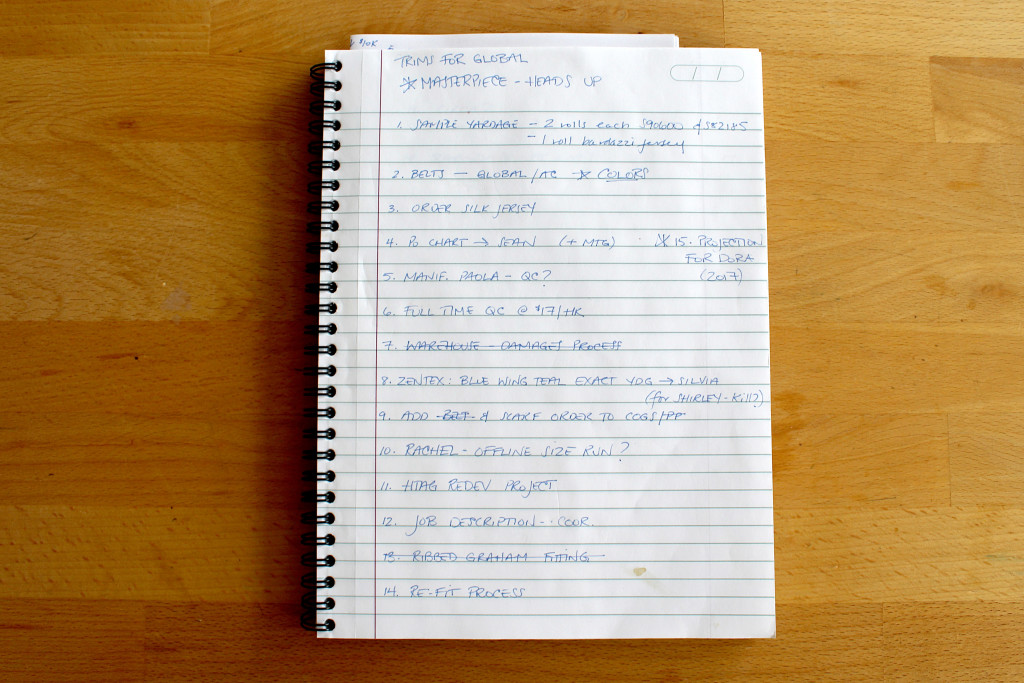 $10K
TRIMS FOR GLOBAL
* MASTERPIECE - HEADS UP
1. SAMPLE YARDAGE - 2 rolls each S90600 & S82185
- 1 roll bardazzi jersey
2. BELTS - GLOBAL/AC -* COLORS
3. ORDER SILK JERSEY
4. PO CHART → SEAN (+ MTG)
* 15. PROJECTION
FOR DORA
(2017)
5. MANIF. PAOLA - QC?
6. FULL TIME QC @ $17/HR
7. WAREHOUSE - DAMAGES PROCESS
8. ZENTEX: BLUE WING TEAL EXACT YDG → SILVIA
(for SHIRLEY - Kill?)
9. ADD BELT & SCARF ORDER TO COGS/PP
10. RACHEL - OFFLINE SIZE RUN?
11. HTAG REDEV PROJECT
12. JOB DESCRIPTION - COOR.
13. RIBBED GRAHAM FITTING
14. RE-FIT PROCESS